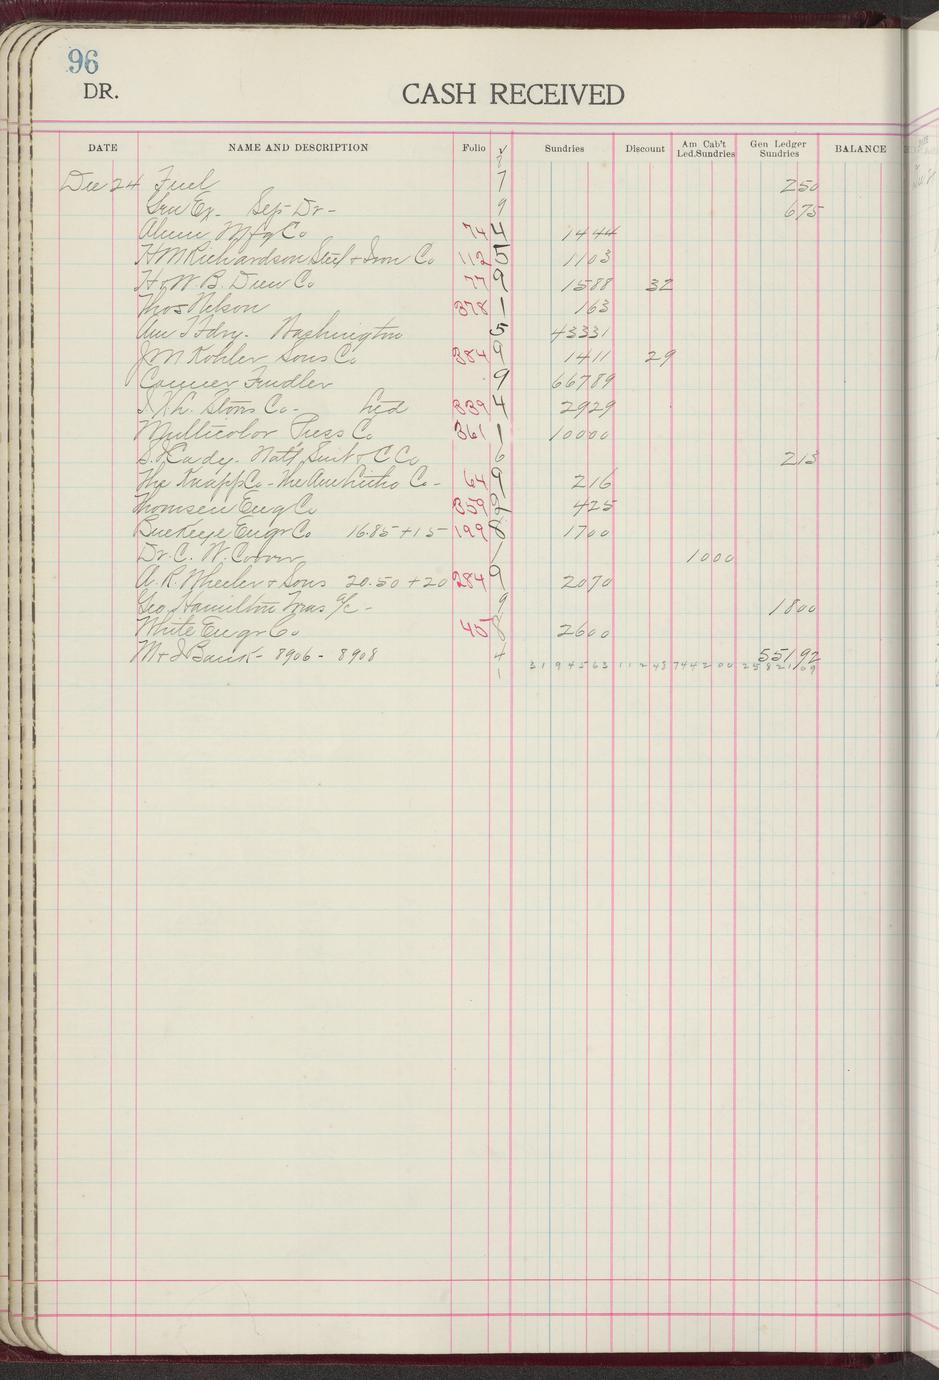 96
DR.
CASH RECEIVED
DATE NAME AND DESCRIPTION Folio √ Sundries Discount Am Cab't Led.Sundries Gen Ledger Sundries BALANCE
8
Dec 24 Fuel 7 250
Gen Ex. Sep- Dr- 9 675
Alum Mfg Co 74 4 1444
H M Richardson Steel + Iron Co 112 5 1103
H & W B. Drew Co 77 9 1588 32
Thos Nelson 378 1 163
Am T Fdry. Washington 5 43331
J M Kohler Sons Co 384 9 1411 29
Conner Fendler 9 66789
Co. 339 4 2929
Multicolor Press Co 361 1 10000
S. Cady. Nat'l 6 213
The Knapp Co - The Am Litho Co - 64 9 216
Thomsen Eng Co 359 2 425
Buckeye Engr Co 16.85 + 15 199 8 1700
Dr. C. W. Coover 1 1000
A. R. Wheeler + Sons 20.50 + 20 284 9 2070
Geo Hamilton Treas a/c - 9 1800
White Engr Co 45 8 2600
M & I Bank - 8906 - 8908 4 55192
1 31945 63 112 48 7442 00 25821 09